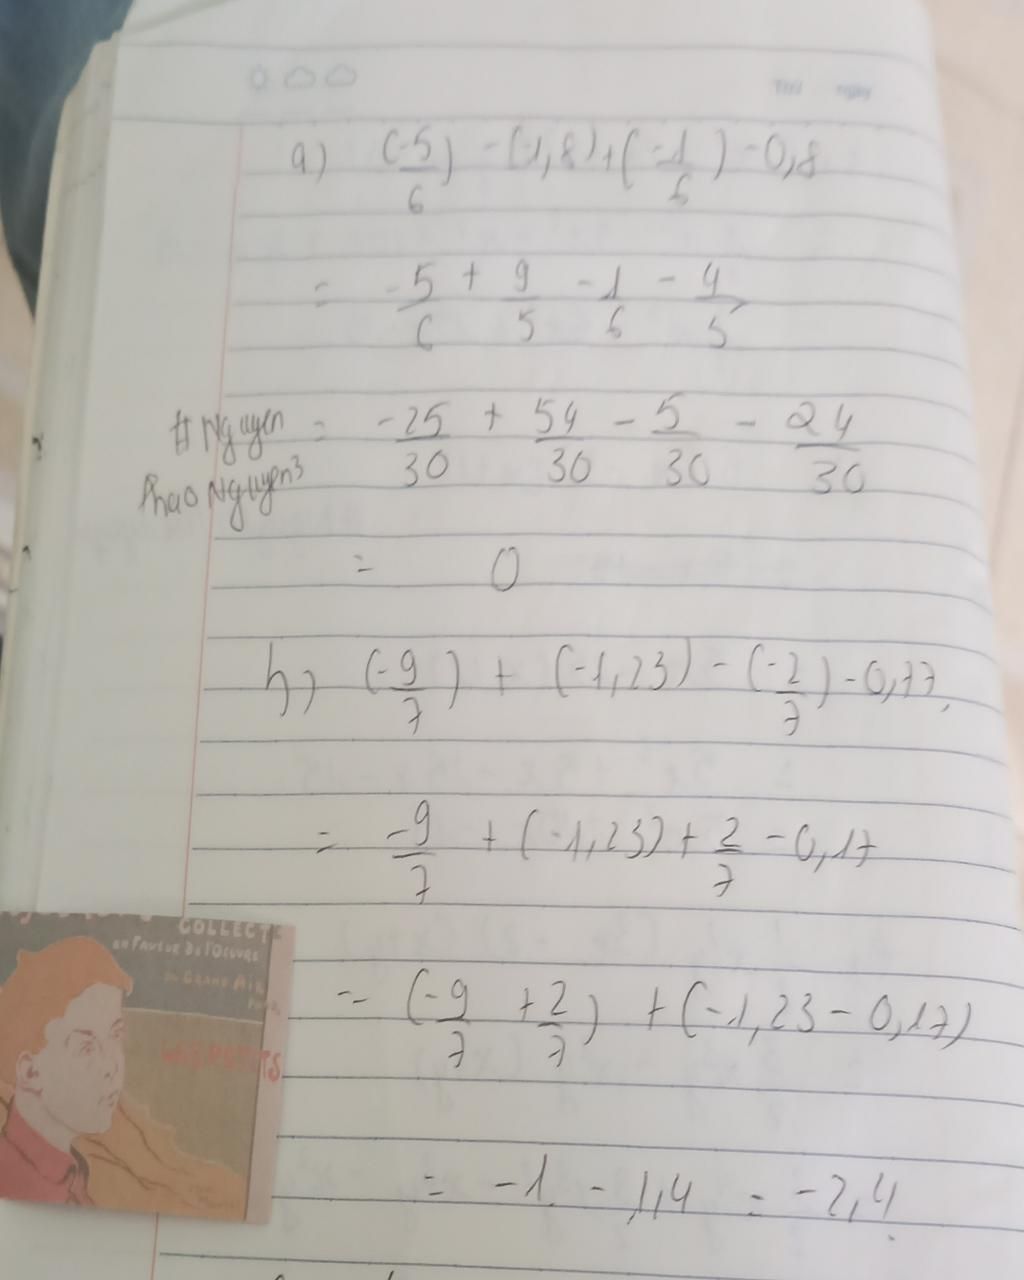 Thứ ngày
a) (-5/6) - (-1,8) + (-1/6) - 0,8
= -5/6 + 9/5 - 1/6 - 4/5
# Nguyen = -25/30 + 54/30 - 5/30 - 24/30
Thao Nguyen3
= 0
b) (-9/7) + (-1,23) - (-2/7) - 0,17
= -9/7 + (-1,23) + 2/7 - 0,17
COLLECTE
en Faveur de l'Oeuvre
du Grand Air
= (-9/7 + 2/7) + (-1,23 - 0,17)
LES PETITS
= -1 - 1,4 = -2,4